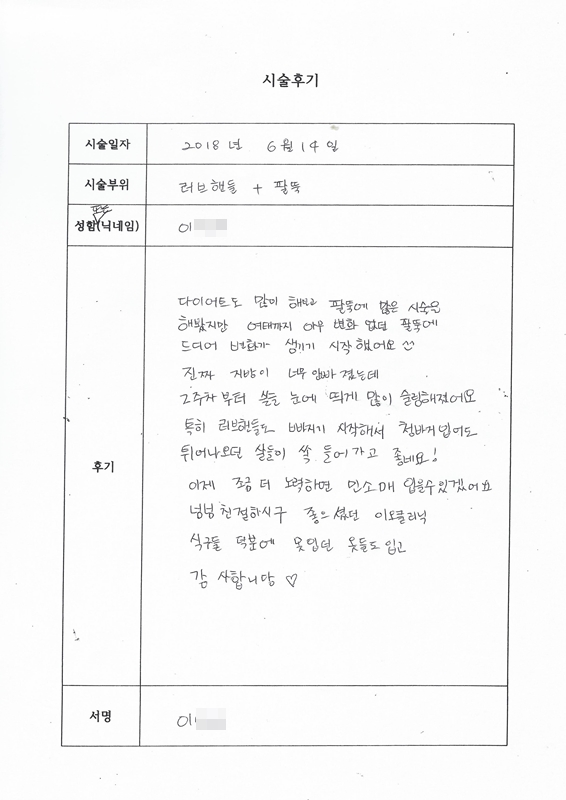 시술후기
시술일자 2018년 6월 14일
시술부위 러브핸들 + 팔뚝
성함(닉네임) 이
후기
다이어트도 많이 해보고 팔뚝에 많은 시술을
해봤지만 여태까지 아무 변화 없던 팔뚝에
드디어 변화가 생기기 시작했어요
진짜 지방이 너무 안빠졌는데
2주차부터 슬슬 눈에 띄게 많이 슬림해졌어요
특히 러브핸들도 빠지기 시작해서 청바지입어도
튀어나오던 살들이 쏙 들어가고 좋네요!
이제 조금 더 노력하면 민소매 입을수있겠어요
넝넝 친절하시구 좋으셨던 이오클리닉
식구들 덕분에 못입던 옷들도 입고
감사합니당 ♡
서명 이